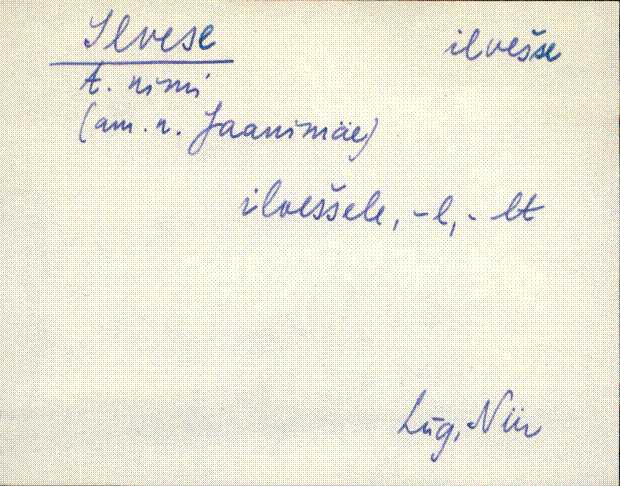 Ilvese ilvešse
t. nimi
(am. n. Jaanimäe)
ilveššele, -l, - lt
Lüg, Niir